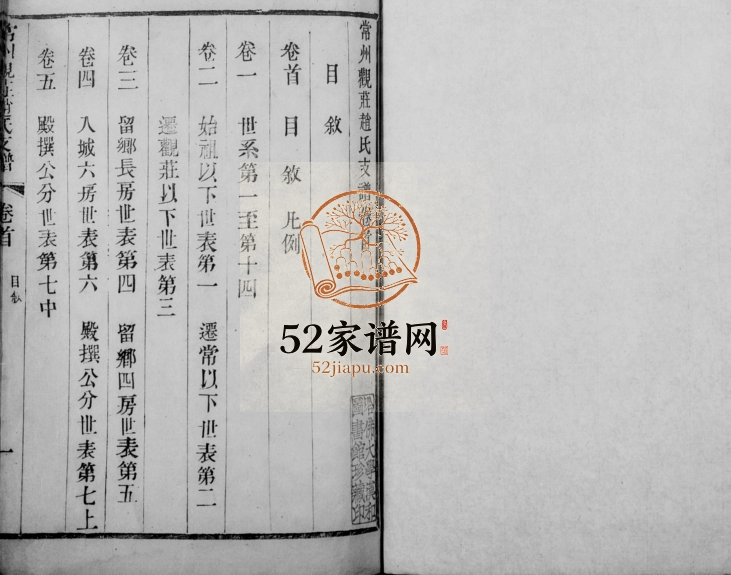 常州觀莊趙氏支譜卷首
目敘
卷首 目敘 凡例
卷一 世系第一至第十四
卷二 始祖以下世表第一 遷常以下世表第二
遷觀莊以下世表第三
卷三 留鄉長房世表第四 留鄉四房世表第五
卷四 入城六房世表第六 殿撰公分世表第七上
卷五 殿撰公分世表第七中
常州觀莊趙氏支譜 卷首 目敘 一
52家谱网
52jiapu.com
哈佛大學漢和
圖書館珍藏印